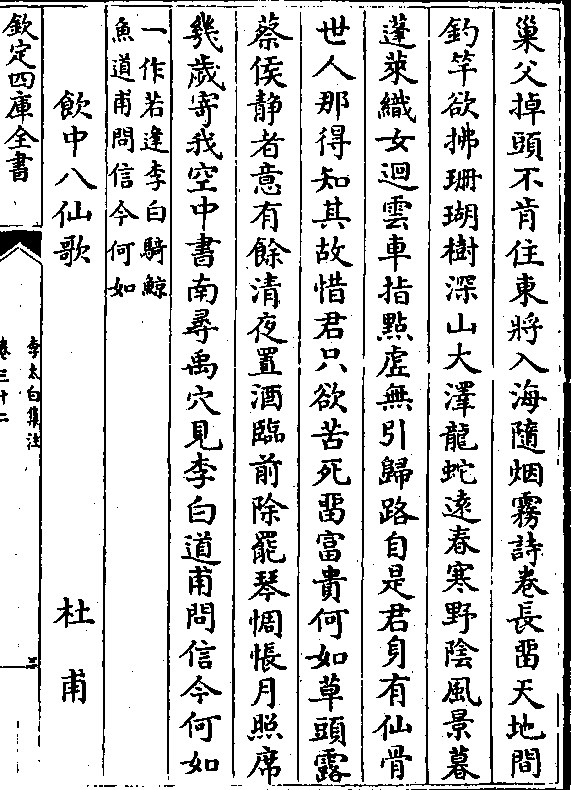 巢父掉頭不肯住東將入海隨烟霧詩卷長畱天地間
釣竿欲拂珊瑚樹深山大澤龍蛇遠春寒野陰風景暮
蓬萊織女迴雲車指點虛無引歸路自是君身有仙骨
世人那得知其故惜君只欲苦死畱富貴何如草頭露
蔡侯静者意有餘清夜置酒臨前除罷琴惆悵月照席
幾歲寄我空中書南尋禹穴見李白道甫問信今何如
一作若逢李白騎鯨
魚道甫問信今何如
飲中八仙歌 杜甫
欽定四庫全書
李太白集注
卷三十二
三